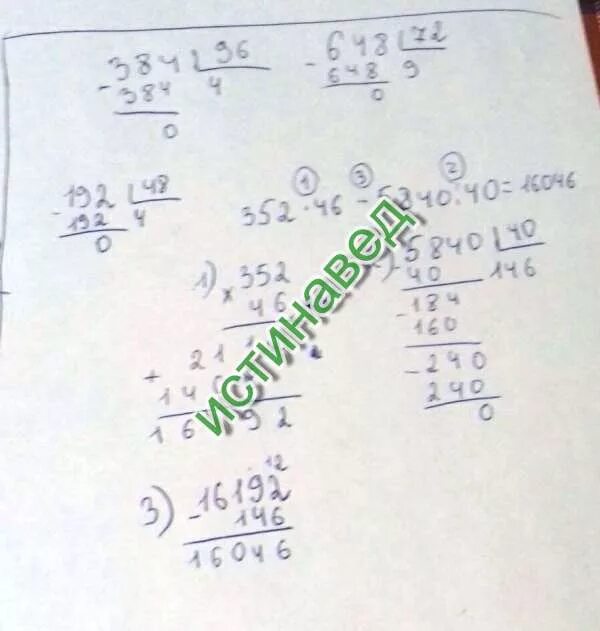 384 96
- 384 4
0
648 72
- 648 9
0
192 48
- 192 4
0
1 3 2
352 · 46 - 5840 : 40 = 16046
1) 352
× 46
+ 21
14
16 92
- 5840 40
40 146
- 184
160
- 240
240
0
12
3) - 16192
146
16046
истинавед